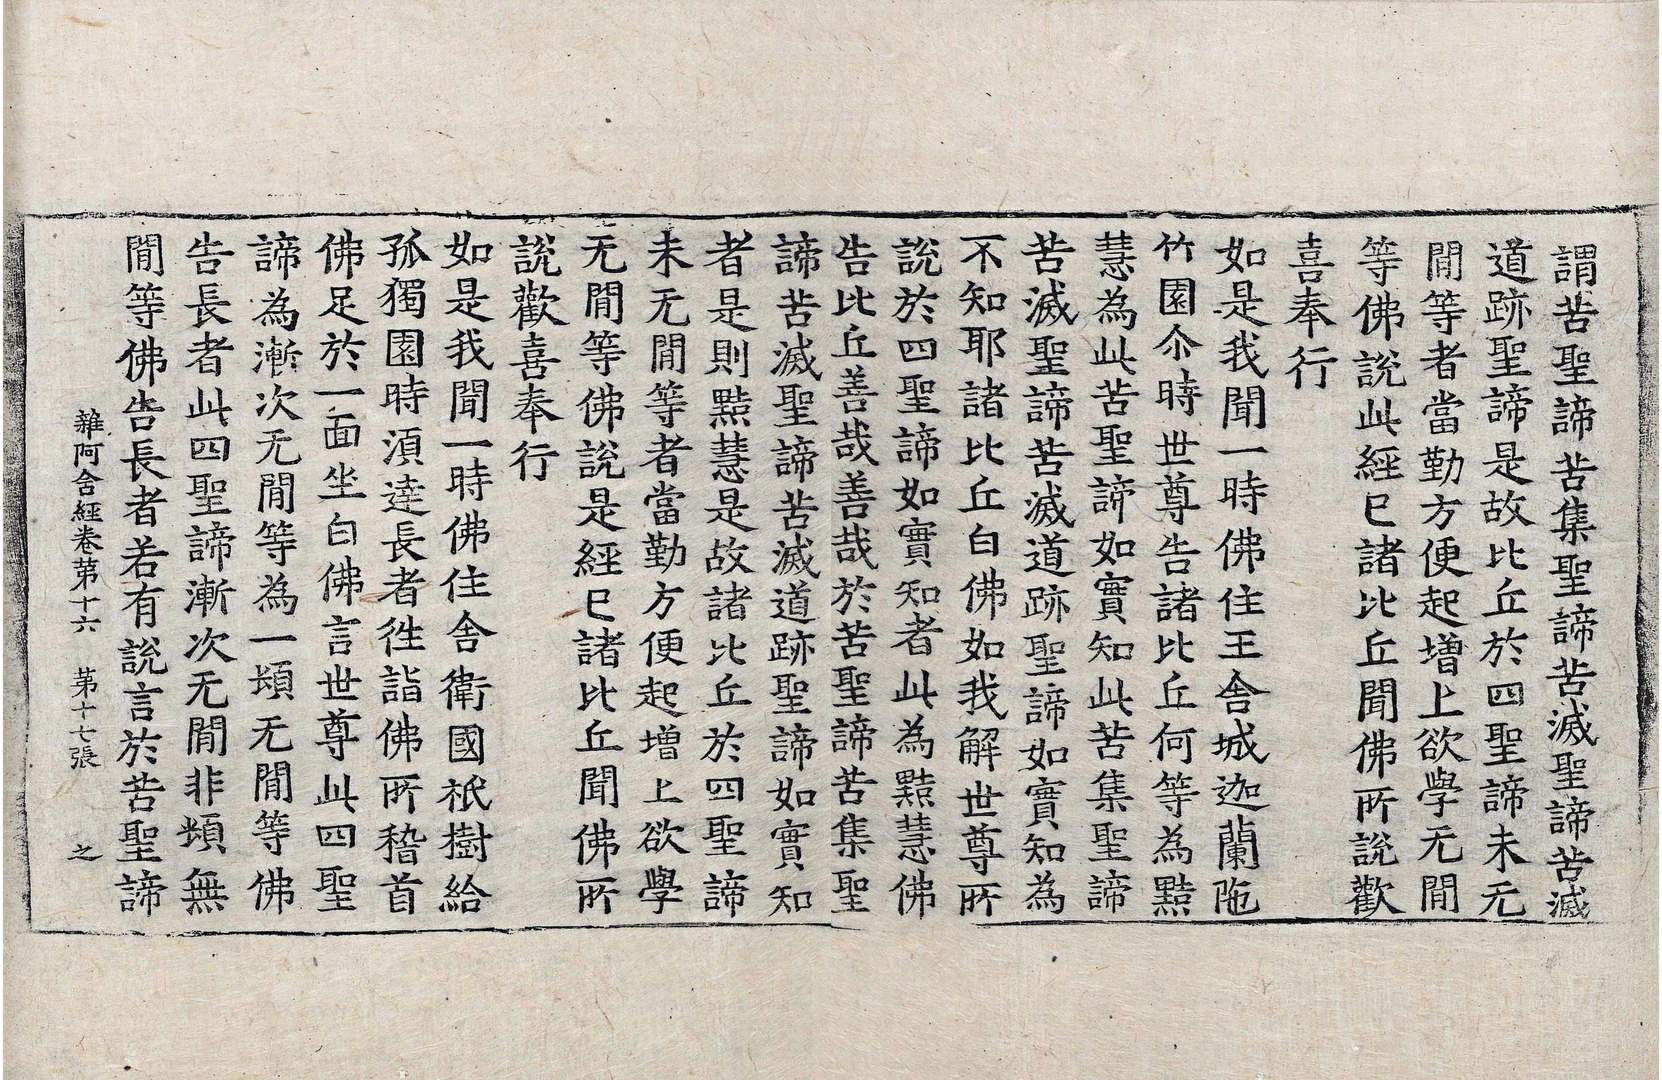 謂苦聖諦苦集聖諦苦滅聖諦苦滅
道跡聖諦是故比丘於四聖諦未无
閒等者當勤方便起增上欲學无閒
等佛說此經已諸比丘聞佛所說歡
喜奉行
如是我聞一時佛住王舍城迦蘭陁
竹園尒時世尊告諸比丘何等為黠
慧為此苦聖諦如實知此苦集聖諦
苦滅聖諦苦滅道跡聖諦如實知為
不知耶諸比丘白佛如我解世尊所
說於四聖諦如實知者此為黠慧佛
告比丘善哉善哉於苦聖諦苦集聖
諦苦滅聖諦苦滅道跡聖諦如實知
者是則黠慧是故諸比丘於四聖諦
未无閒等者當勤方便起增上欲學
无閒等佛說是經已諸比丘聞佛所
說歡喜奉行
如是我聞一時佛住舍衛國祇樹給
孤獨園時湏達長者徃詣佛所稽首
佛足於一面坐白佛言世尊此四聖
諦為漸次无閒等為一頓无閒等佛
告長者此四聖諦漸次无閒非頓無
閒等佛告長者若有說言於苦聖諦
雜阿含經卷第十六 第十七張 之